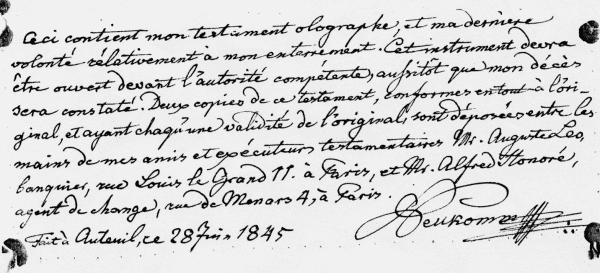 Ceci contient mon testament olographe, et ma dernière
volonté rélativement à mon enterrement. Cet instrument devra
être ouvert devant l'autorité compétente, aussitot que mon décès
sera constaté. Deux copies de ce testament, conformes en tout à l'ori-
ginal, et ayant chaqu'une validité de l'original, sont déposées entre les
mains de mes amis et exécuteurs testamentaires Mr. Auguste Leo,
banquier, rue Louis le Grand 11. à Paris, et Mr. Alfred Honoré,
agent de change, rue de Menars 4, à Paris.
Neukomm
Fait à Auteuil, ce 28 Juin 1845